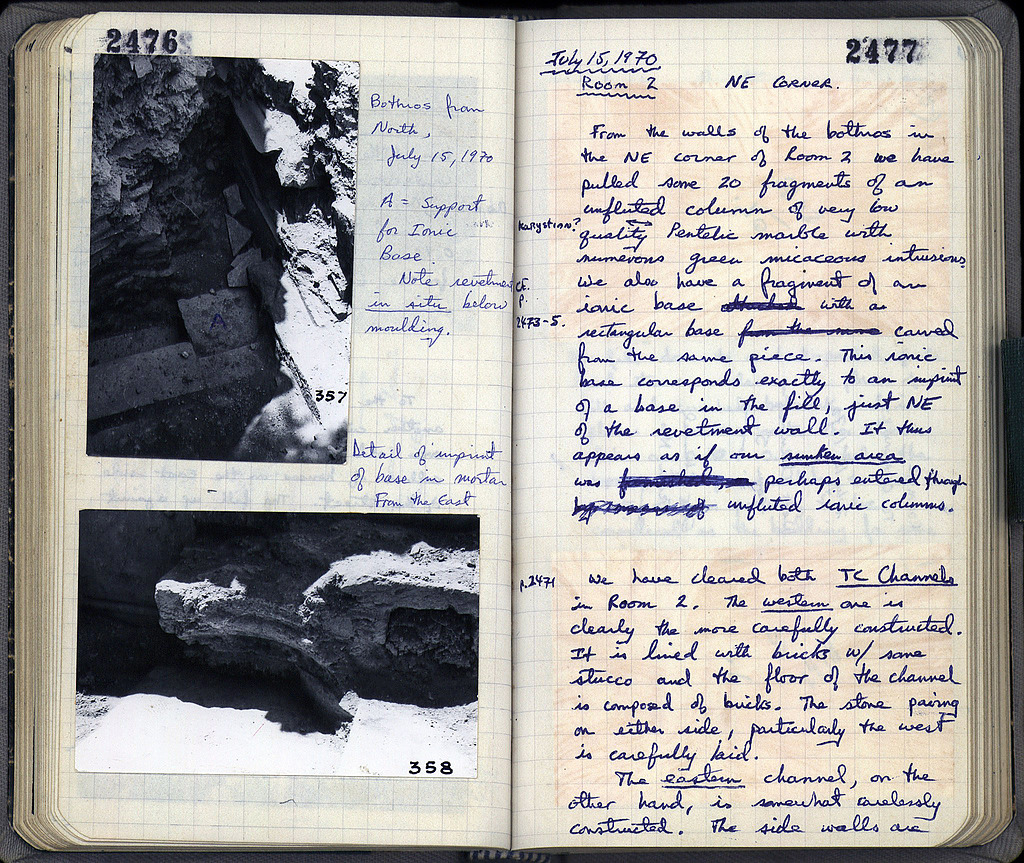 2476
Bothros from
North,
July 15, 1970
A = Support
for Ionic
Base.
Note revetment
in situ below
moulding.
A
357
Detail of imprint
of base in mortar
From the East
358
2477
July 15, 1970
Room 2 NE Corner.
From the walls of the bothros in
the NE corner of Room 2 we have
pulled some 20 fragments of an
unfluted column of very low
Karystian?
quality Pentelic marble with
numerous green micaceous intrusions.
We also have a fragment of an
CF.
P.
2473-5.
ionic base attached with a
rectangular base from the same carved
from the same piece. This ionic
base corresponds exactly to an imprint
of a base in the fill, just NE
of the revetment wall. It thus
appears as if our sunken area
was perhaps entered through
by means of unfluted ionic columns.
p. 2471
We have cleared both TC Channels
in Room 2. The western one is
clearly the more carefully constructed.
It is lined with bricks w/ some
stucco and the floor of the channel
is composed of bricks. The stone paving
on either side, particularly the west
is carefully laid.
The eastern channel, on the
other hand, is somewhat carelessly
constructed. The side walls are